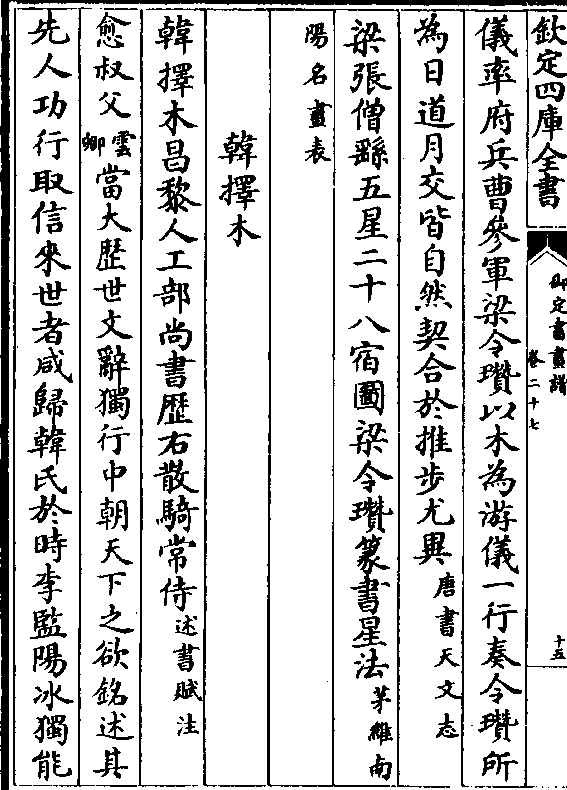 欽定四庫全書
御定書畫譜
卷二十七
十五
儀率府兵曹參軍梁令瓚以木為游儀一行奏令瓚所
為日道月交皆自然契合於推步尤異唐書天文志
梁張僧繇五星二十八宿圖梁令瓚篆書星法茅維南
陽名畫表
韓擇木
韓擇木昌黎人工部尚書歴右散騎常侍述書賦注
愈叔父雲卿當大歴世文辭獨行中朝天下之欲銘述其
先人功行取信來世者咸歸韓氏於時李監陽冰獨能